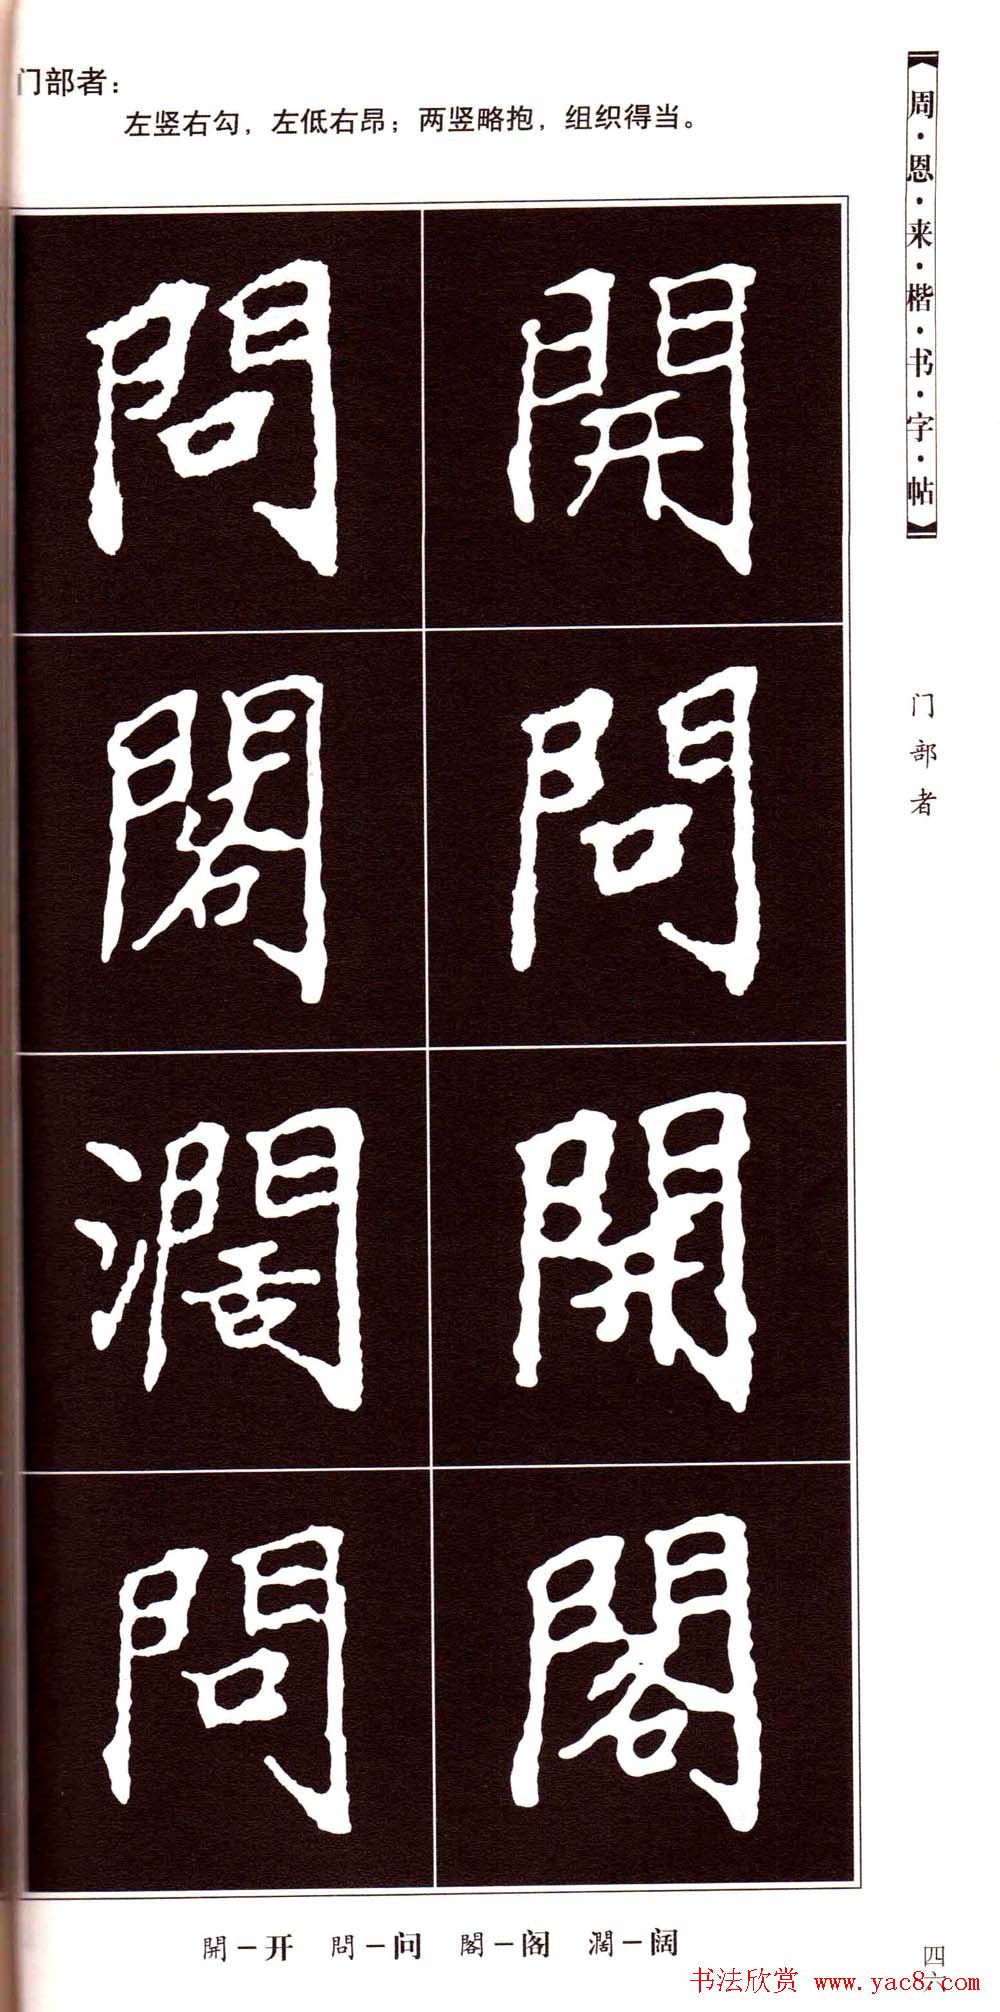 门部者：
左竖右勾，左低右昂；两竖略抱，组织得当。
周·恩·来·楷·书·字·帖
门部者
開
問
開
閣
問
閣
濶
問
開－开 問－问 閣－阁 濶－阔
四六
书法欣赏 www.yac8.com